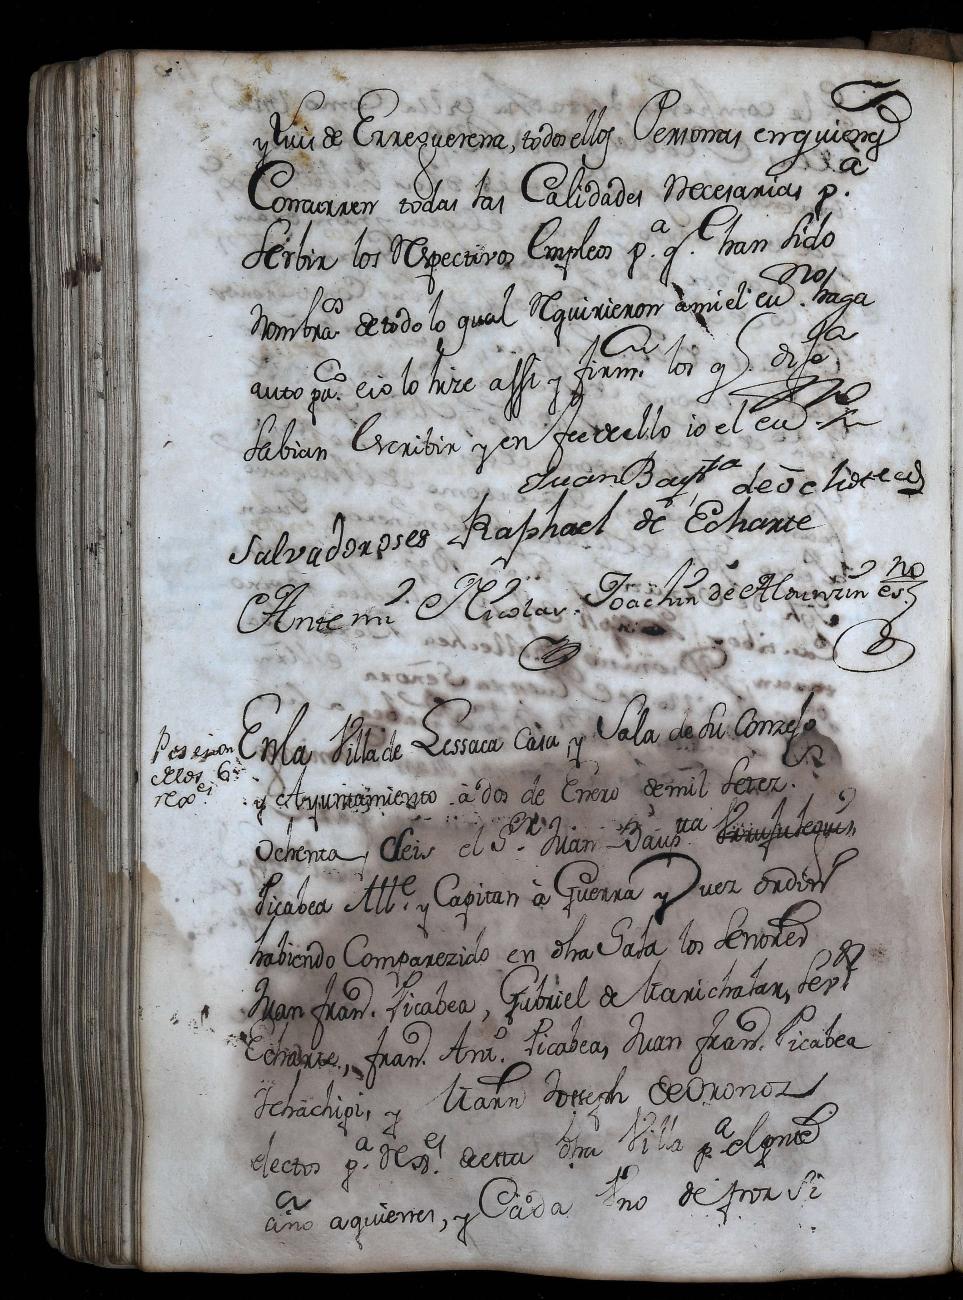 y Luis de Errezuerena, todos ellos Personas en quienes
Concurren todas las Calidades Necesarias p.ª
serbir los Respectivos Empleos p.ª q.e han sido
Nombra.os de todo lo qual Requirieron à mi el eu.no haga
auto pu.co e io lo hize assi y firm.n los q.e dije
sabian Escribir y en fee de ello io el eu.no
Juan Bap.ta de
Salvador Raphael de Echarte
Ante mi Nicolas Joachin de es.no
En la Villa de Lessaca Casa y Sala de su Conzejo
y Ayuntamiento à dos de Enero de mil setez.
Ochenta, Seis el S.or Juan Baup.ta
Picabea All.e y Capitan à Guerra y Juez ordin.
habiendo Comparezido en dha Sala los Señores
Juan Fran.co Picabea, Gabriel de Marichalar,
Echarte, Fran.co Ant.o Picabea, Juan Fran.co Picabea
y Martin Joseph de Oronoz
electos p.ª de esta dha Villa p.ª el pnte
año a quienes, y Cada Vno de por Si
Posesion
de los 6